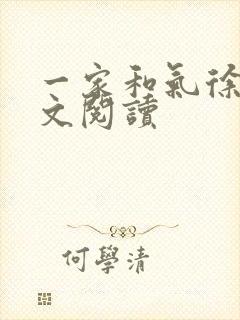 一家和氣徐
文閱讀
何學清